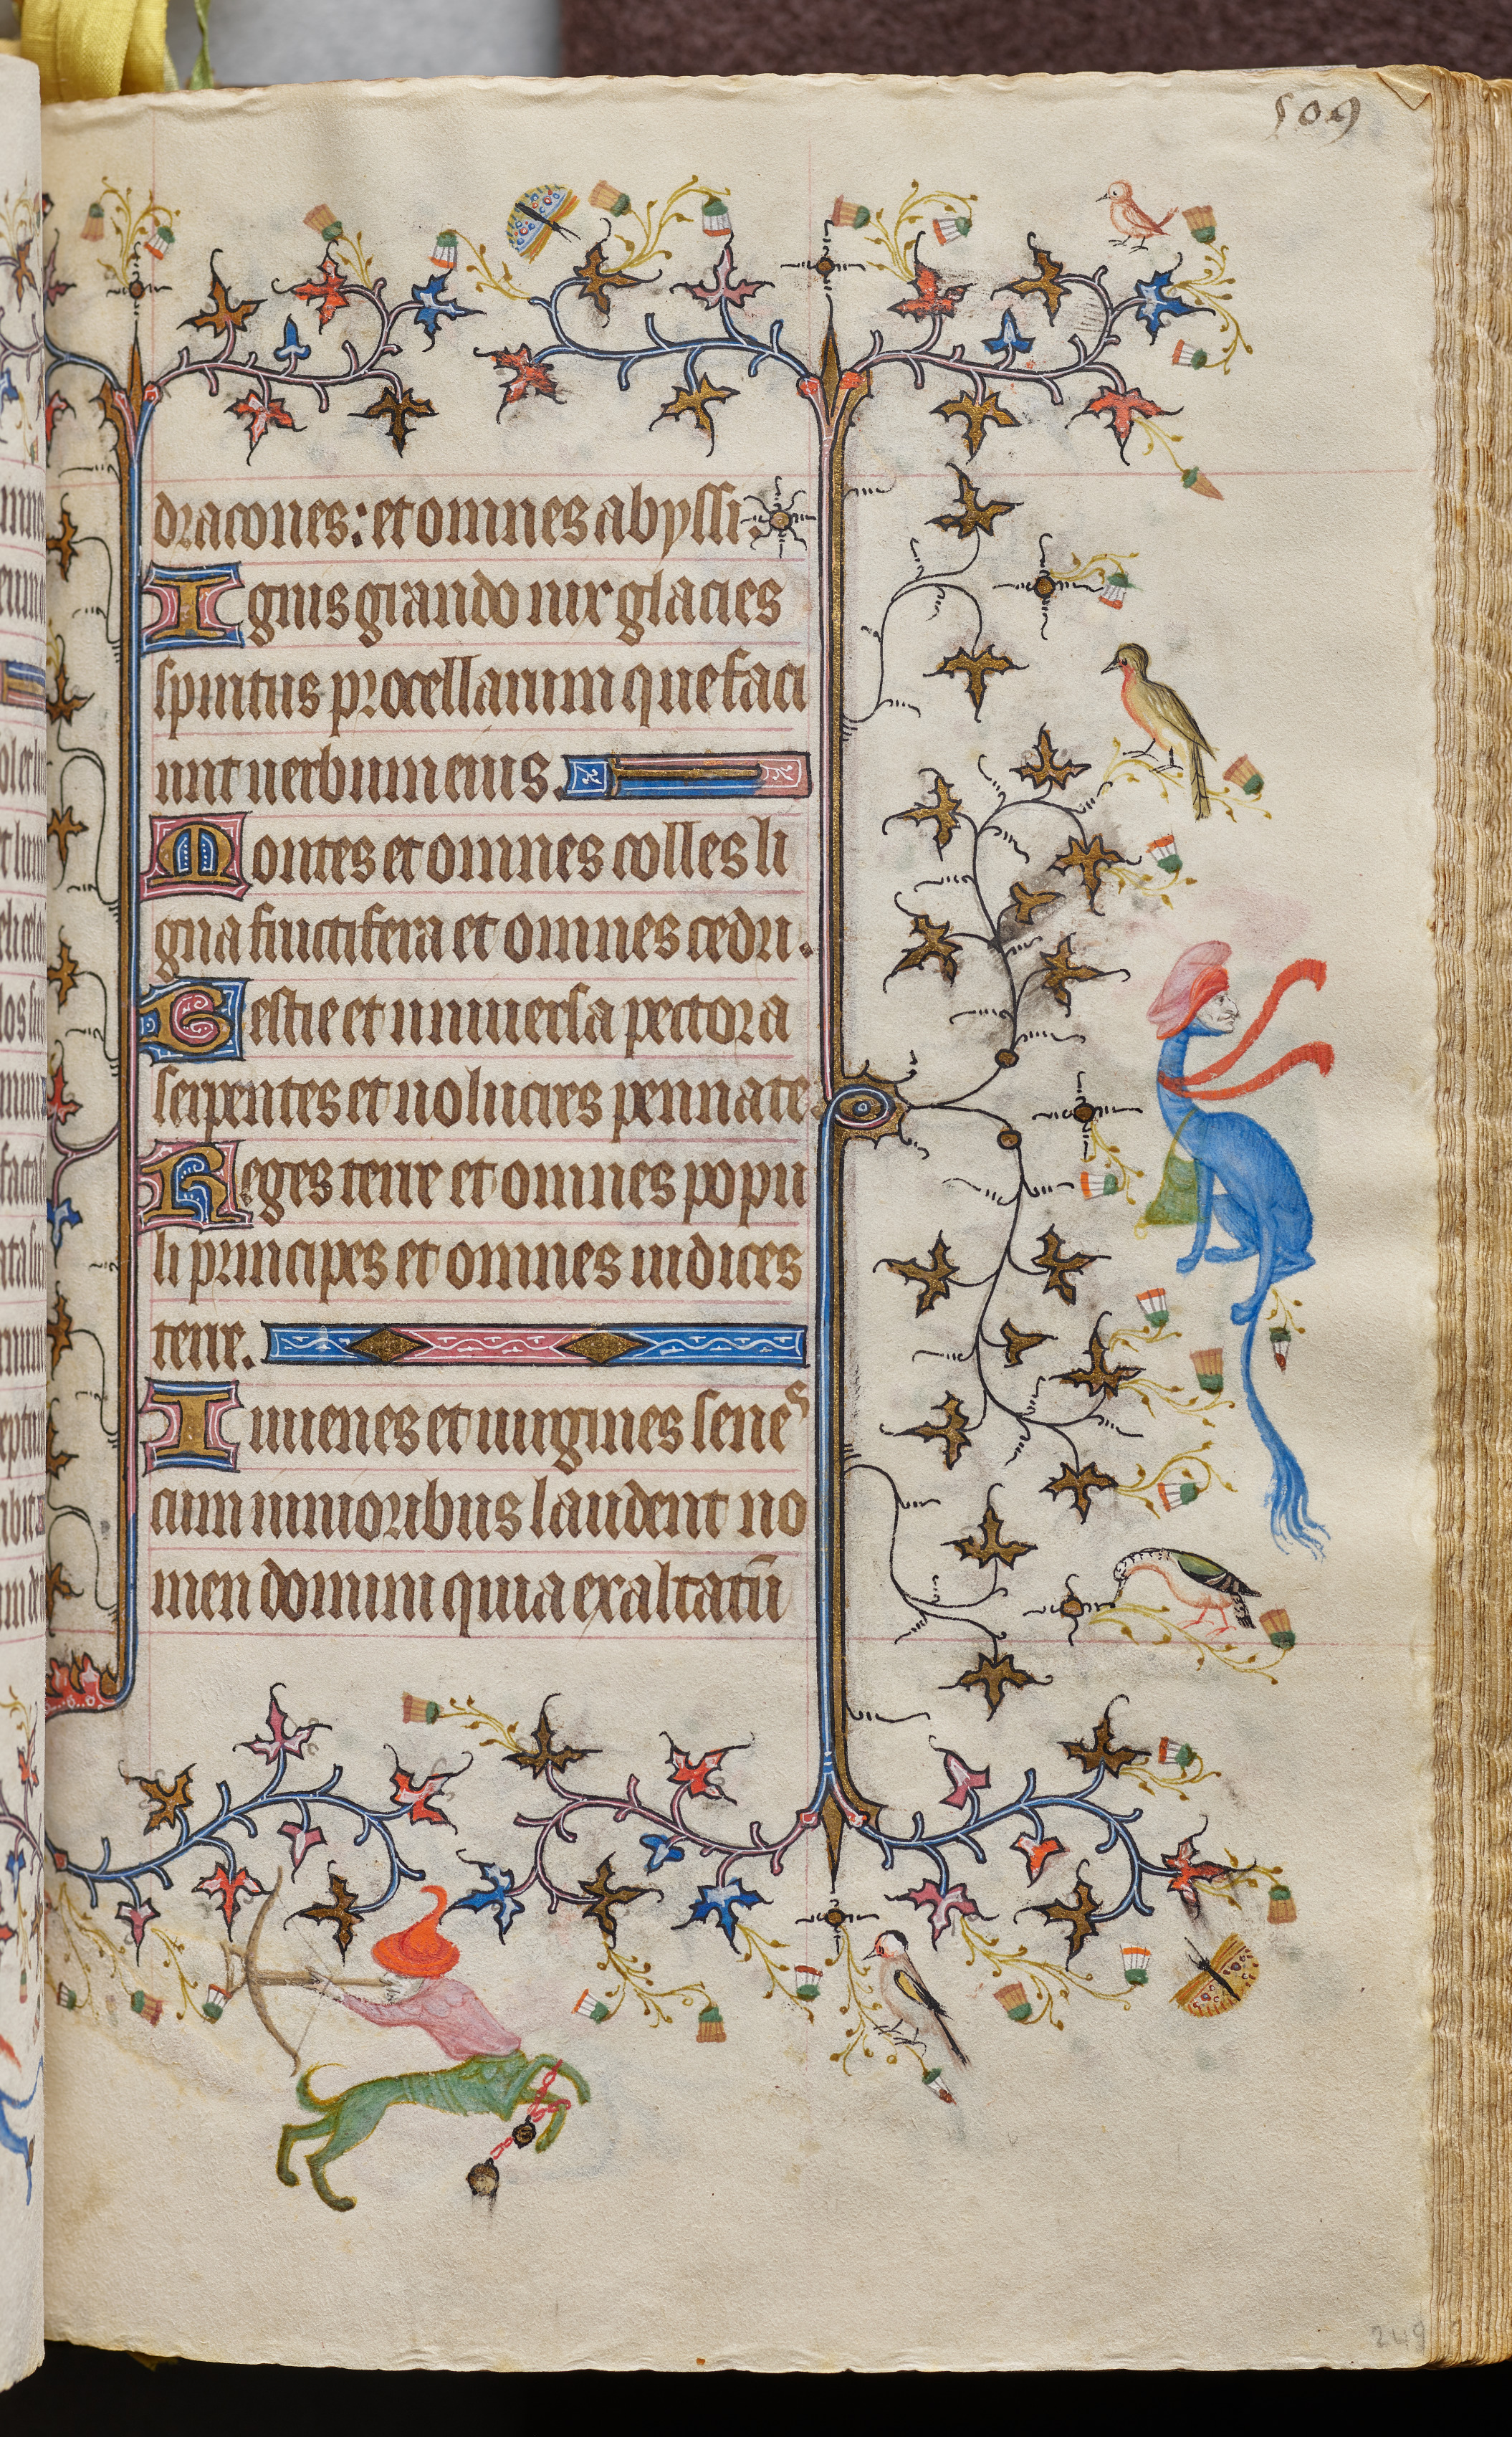 509
dracones: et omnes abyssi.
Ignis grando nix glacies
spiritus procellarum que faci
unt uerbum eius.
Montes et omnes colles li
gna fructifera et omnes cedri.
Bestie et uniuersa pectora
serpentes et uolucres pennate.
Reges terre et omnes popu
li principes et omnes iudices
terre.
Iuuenes et uirgines senes
cum iunioribus laudent no
men domini quia exaltatū
249